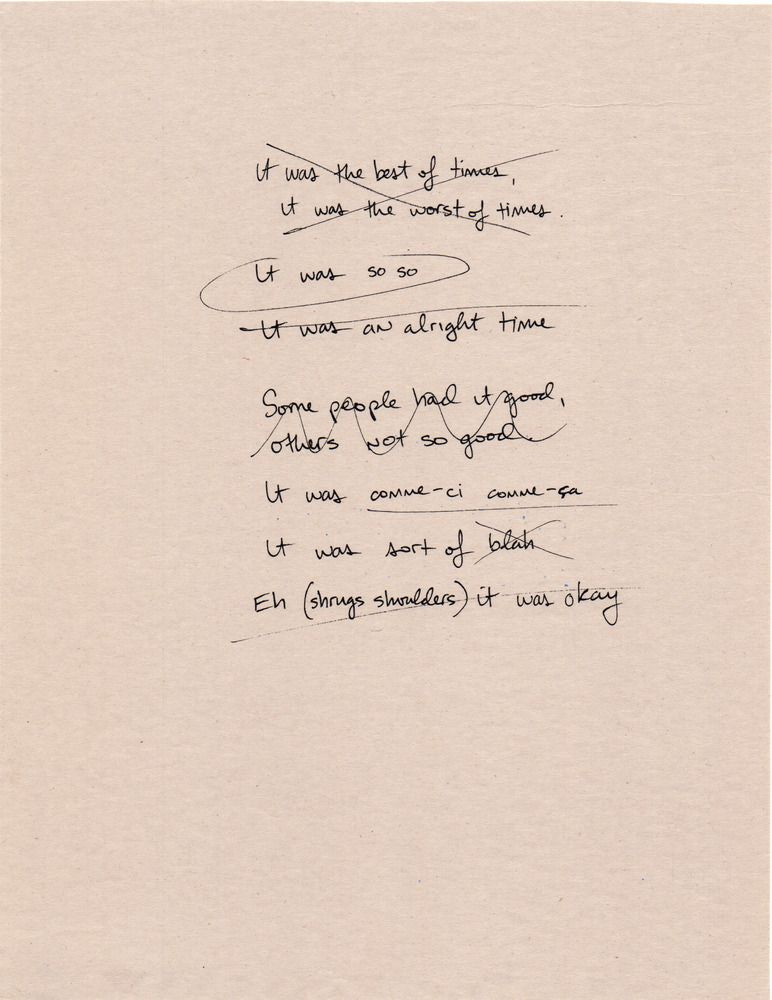 It was the best of times,
it was the worst of times.
It was so so
It was an alright time
Some people had it good,
others not so good.
It was comme-ci comme-ça
It was sort of blah
Eh (shrugs shoulders) it was okay